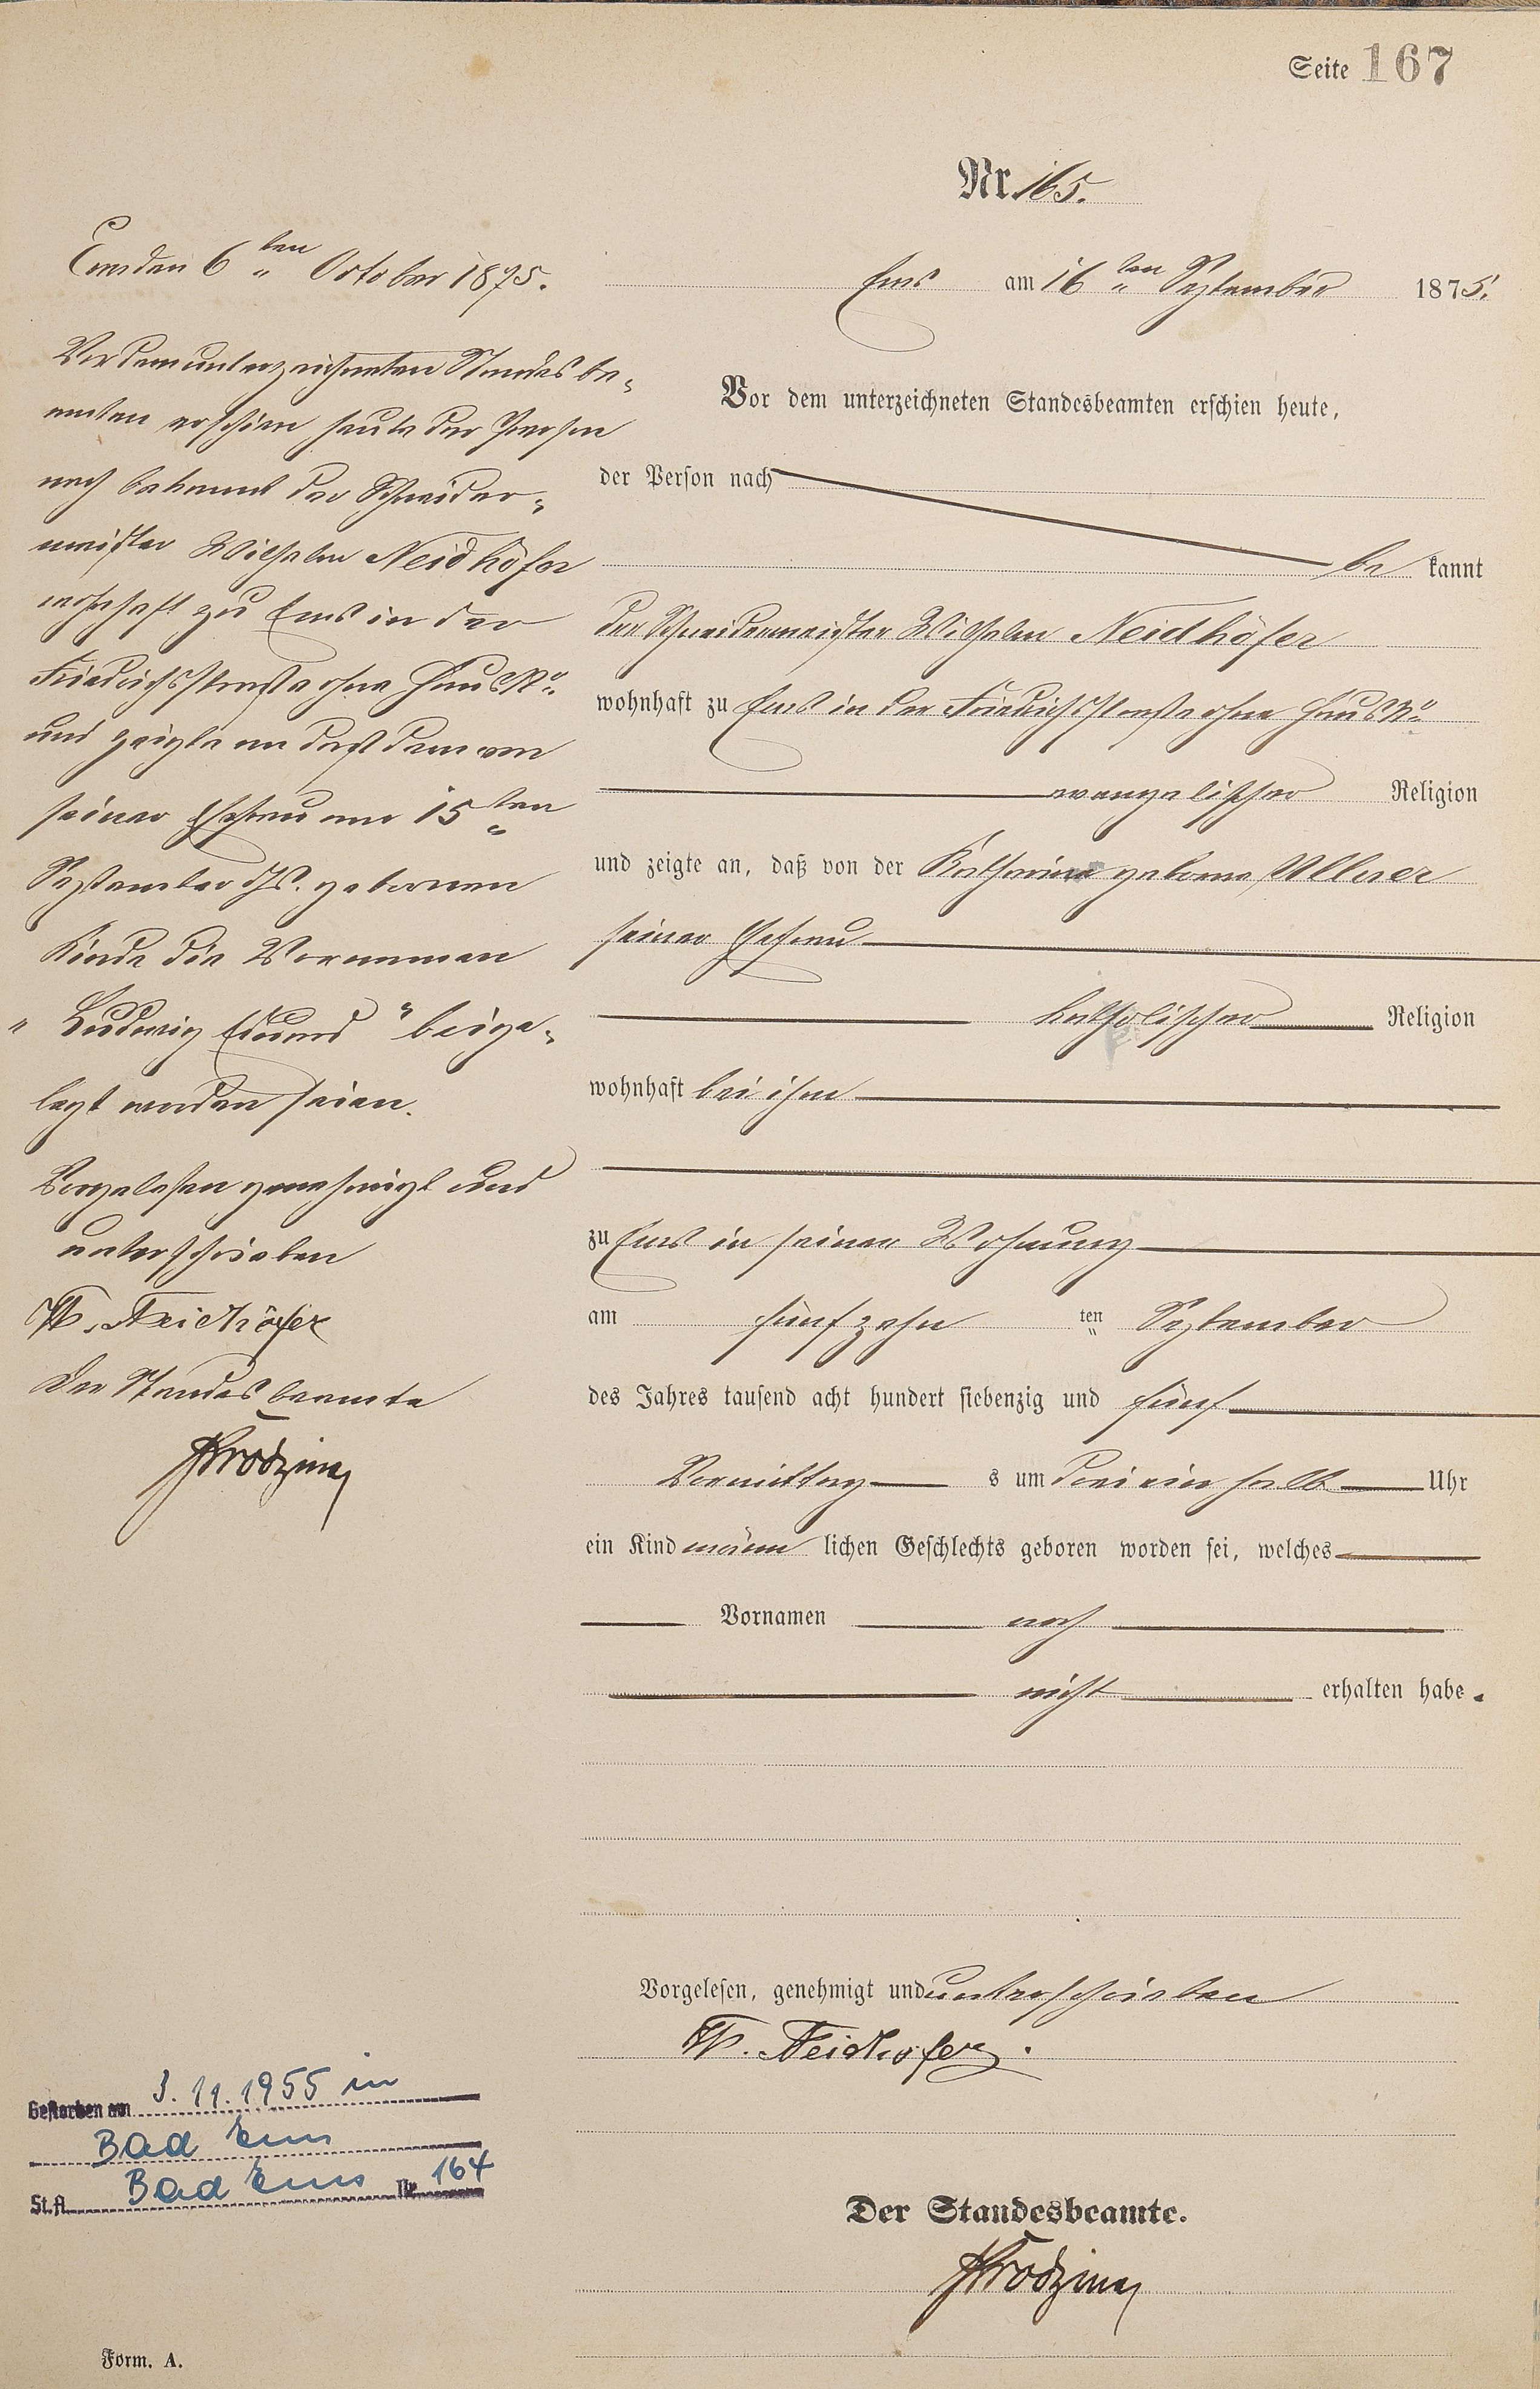 Seite 167
Nr. 165.
Ems am 16 ten September 1875.
Vor dem unterzeichneten Standesbeamten erschien heute,
der Person nach
be kannt
der Schneidermeister Wilhelm Neidhöfer
wohnhaft zu Ems in der Friedrichsstraße ohne Haus No.
evangelischer Religion
und zeigte an, daß von der Katharina geborne Ullner
seiner Ehefrau
katholischer Religion
wohnhaft bei ihm
zu Ems in seiner Wohnung
am fünfzehn ten September
des Jahres tausend acht hundert siebenzig und fünf
Vormittag s um drei ein halb Uhr
ein Kind männ lichen Geschlechts geboren worden sei, welches
Vornamen noch
nicht erhalten habe.
Vorgelesen, genehmigt und unterschrieben
W. Neidhöfer.
Der Standesbeamte.
Ems den 6 ten October 1875.
Vor dem unterzeichneten Standesbe-
amten erschien heute der Person
nach bekannt der Schneider-
meister Wilhelm Neidhöfer
wohnhaft zu Ems in der
Friedrichsstraße ohne Haus No.
und zeigte an daß dem von
seiner Ehefrau am 15 ten
September ds. gebornen
Kinde die Vornamen
"Ludwig Eduard" beige-
legt worden seien.
Vorgelesen genehmigt und
unterschrieben
W. Neidhöfer
Der Standesbeamte
Gestorben am 3. 11. 1955 in
Bad Ems
St.A. Bad Ems Nr. 164
Form. A.